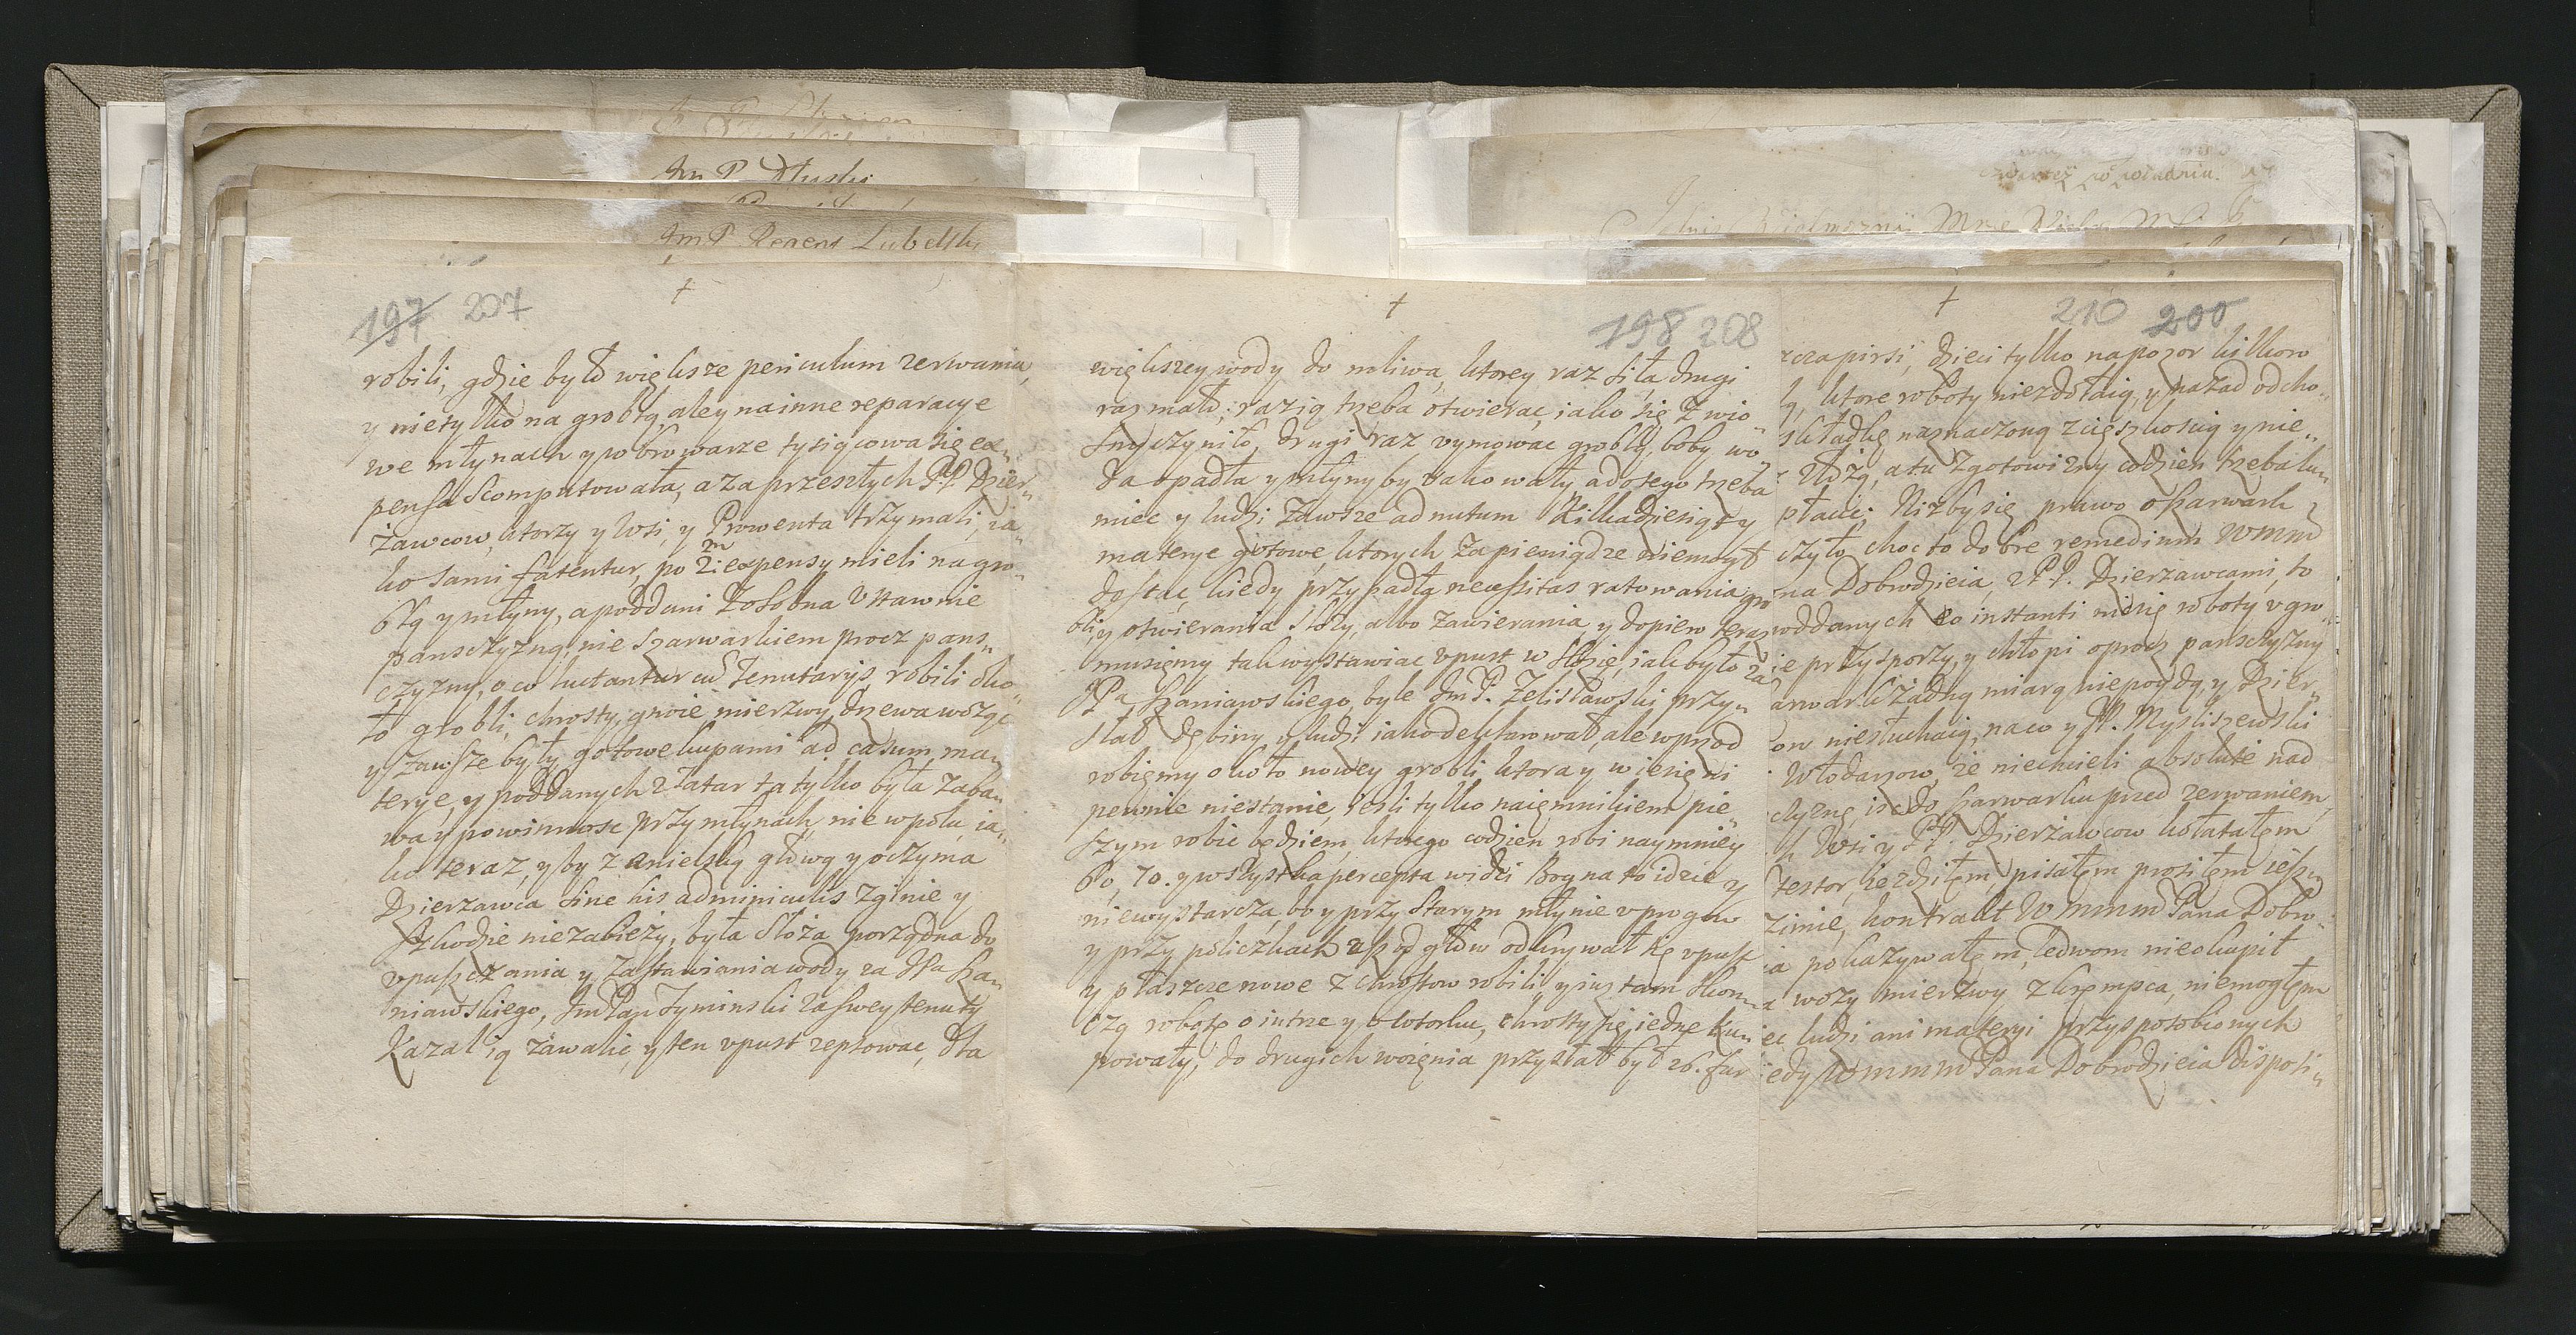 Im P Dłuski
Im P Regens Lubelski
czwartek po południu.
†
197 207
robili, gdzie było większe periculum zerwania,
y nietylko na groblą, ale y na inne reparacye
we młynach y w browarze tysiącowa się ex„
pensa scomputowała, a za przeszłych PP. Dzier„
żawcow, ktorzy y Wsi, y Prowenta trzymali, ia„
ko sami fatentur, po 2 m expensy mieli na gro„
blą y młyny, a poddani Zosobna Ustawnie
pansczyzną, nie szarwarkiem procz pans„
czyzny, o co luctantur cu Tenutarijs, robili oko„
ło grobli, chrosty, gnoie mierzwy, drzewa wożąc
y zawsze były gotowe kupami ad casum ma„
terye, y poddanych z Tatar ta tylko była zaba„
wa y powinnosc przy młynach, nie w polu, ia„
ko teraz, y by z anielską głową y oczyma
Dzierzawca sine his adminiculis zginie y
szkodzie niezabieży, była Słoża porządna do
vpuszczania y zastawiania wody za JPa Sza„
niawskiego, Im Pan Tyminski za swey tenuty
Kazał ią zawalić, y ten vpust zepsować, dla
†
198 208
większey wody do mliwa, ktorey raz siła drugi
raz mało; raz ią trzeba otwierac, iako się z wio„
sny czyniło, drugi raz vymowac groblą, boby wo„
da opadła y młyny by vakowały a do tego trzeba
miec y ludzi Zawsze ad nutum Kilkadziesiąt y
materye gotowe, ktorych za pieniądze niemogł
dostac, kiedy przypadła necessitas ratowania gro
bli, y otwierania Słoży, albo zawierania y dopiero teraz
musięmy tak wystawiac vpust w Słożę, iak było za
JPa Szaniawskiego, byle Im P. Zelisławski przy„
słał dębiny y ludzi iako deklarował, ale wprzod
robięmy około nowey grobli, ktora y w iesięni
pewnie niestanie, iesli tylko naięmnikiem pie„
szym robic będziem, ktorego codzien robi naymniey
60, 70. y wszystka percepta widzi Bog na to idzie y
niewystarcza, bo y przy Starym młynie v progow
y przy policzkach asz od głow odkrywał się vpust
y płaszcze nowe z chrostow robili y iusz tam skon„
czą robotę o iutrze y o wtorku, chrosty się iedne ku„
powały, do drugich wozięnia przysłał był 26. fur
†
210 200
pirsi, dzieci tylko na pozor kilkoro
ktore roboty niezdołaią, y nazad odcho„
składkę naznaczoną z cięszkoscią y nie„
a tu z gotowizny codzien trzeba lu„
płacic; Nizby się prawo o szarwark
czyło, choc to dobre remedium WMMM
na Dobrodzieia, z PP. Dzierzawcami, to
poddanych eo instanti roboty v gro„
ie przysporzy, y chłopi oprocz pansczyzny
arwark żadną miarą niepoydą, y Dzier„
ow niesłuchaią, na co y JP. Mysliszewski
Włodarzow, że niechcieli absolute nad
czyznę, isc do szarwarku przed zerwaniem,
Wsi y PP. Dzierżawcow kołatałęm
testor, iezdziłęm, pisałęm prosiłęm iesz„
zimie, kontrakt WMMM Pana Dobro„
ia pokazywałęm, ledwom nieokupił
wozy mierzwy z krępca, niemogłęm
iec ludzi ani materyi przysposobionych
iedy WMMM Pana Dobrodzieia disposi„